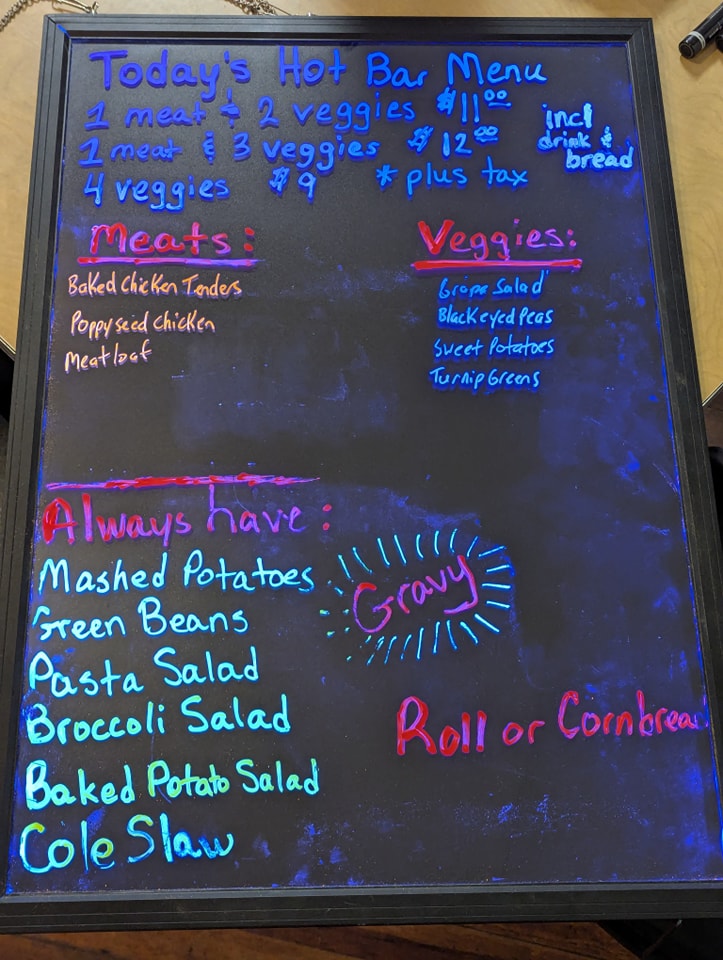 Today's Hot Bar Menu
1 meat & 2 veggies $11.00
1 meat & 3 veggies $12.00
4 veggies $9 *plus tax
incl
drink &
bread
Meats:
Baked Chicken Tenders
Poppyseed Chicken
Meatloaf
Veggies:
Grape Salad
Blackeyed Peas
Sweet Potatoes
Turnip Greens
Always have:
Mashed Potatoes
Gravy
Green Beans
Pasta Salad
Broccoli Salad
Roll or Cornbread
Baked Potato Salad
Cole Slaw